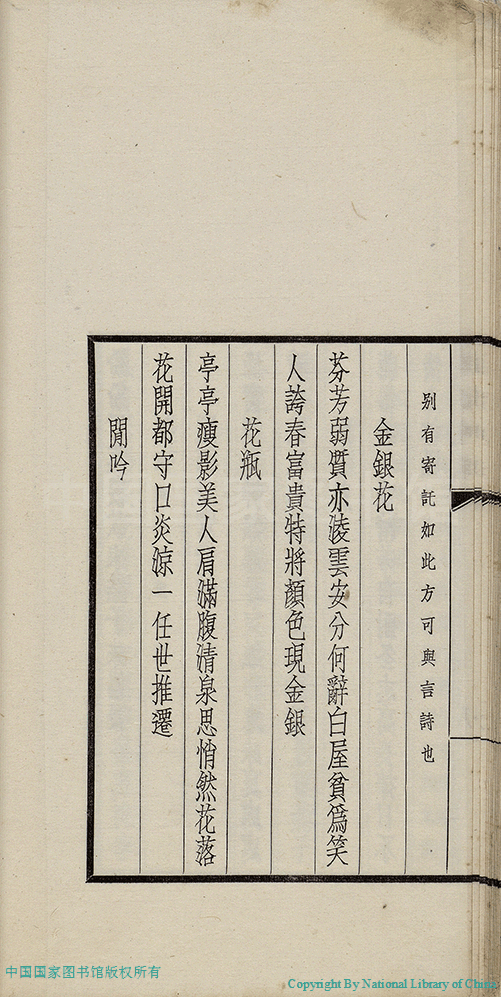 别有寄託如此方可與言詩也
金銀花
芬芳弱質亦淩雲安分何辭白屋貧爲笑
人誇春富貴特將顏色現金銀
花瓶
亭亭瘦影美人肩滿腹清泉思悄然花落
花開都守口炎涼一任世推遷
閒吟
中国国家图书馆版权所有
Copyright By National Library of China